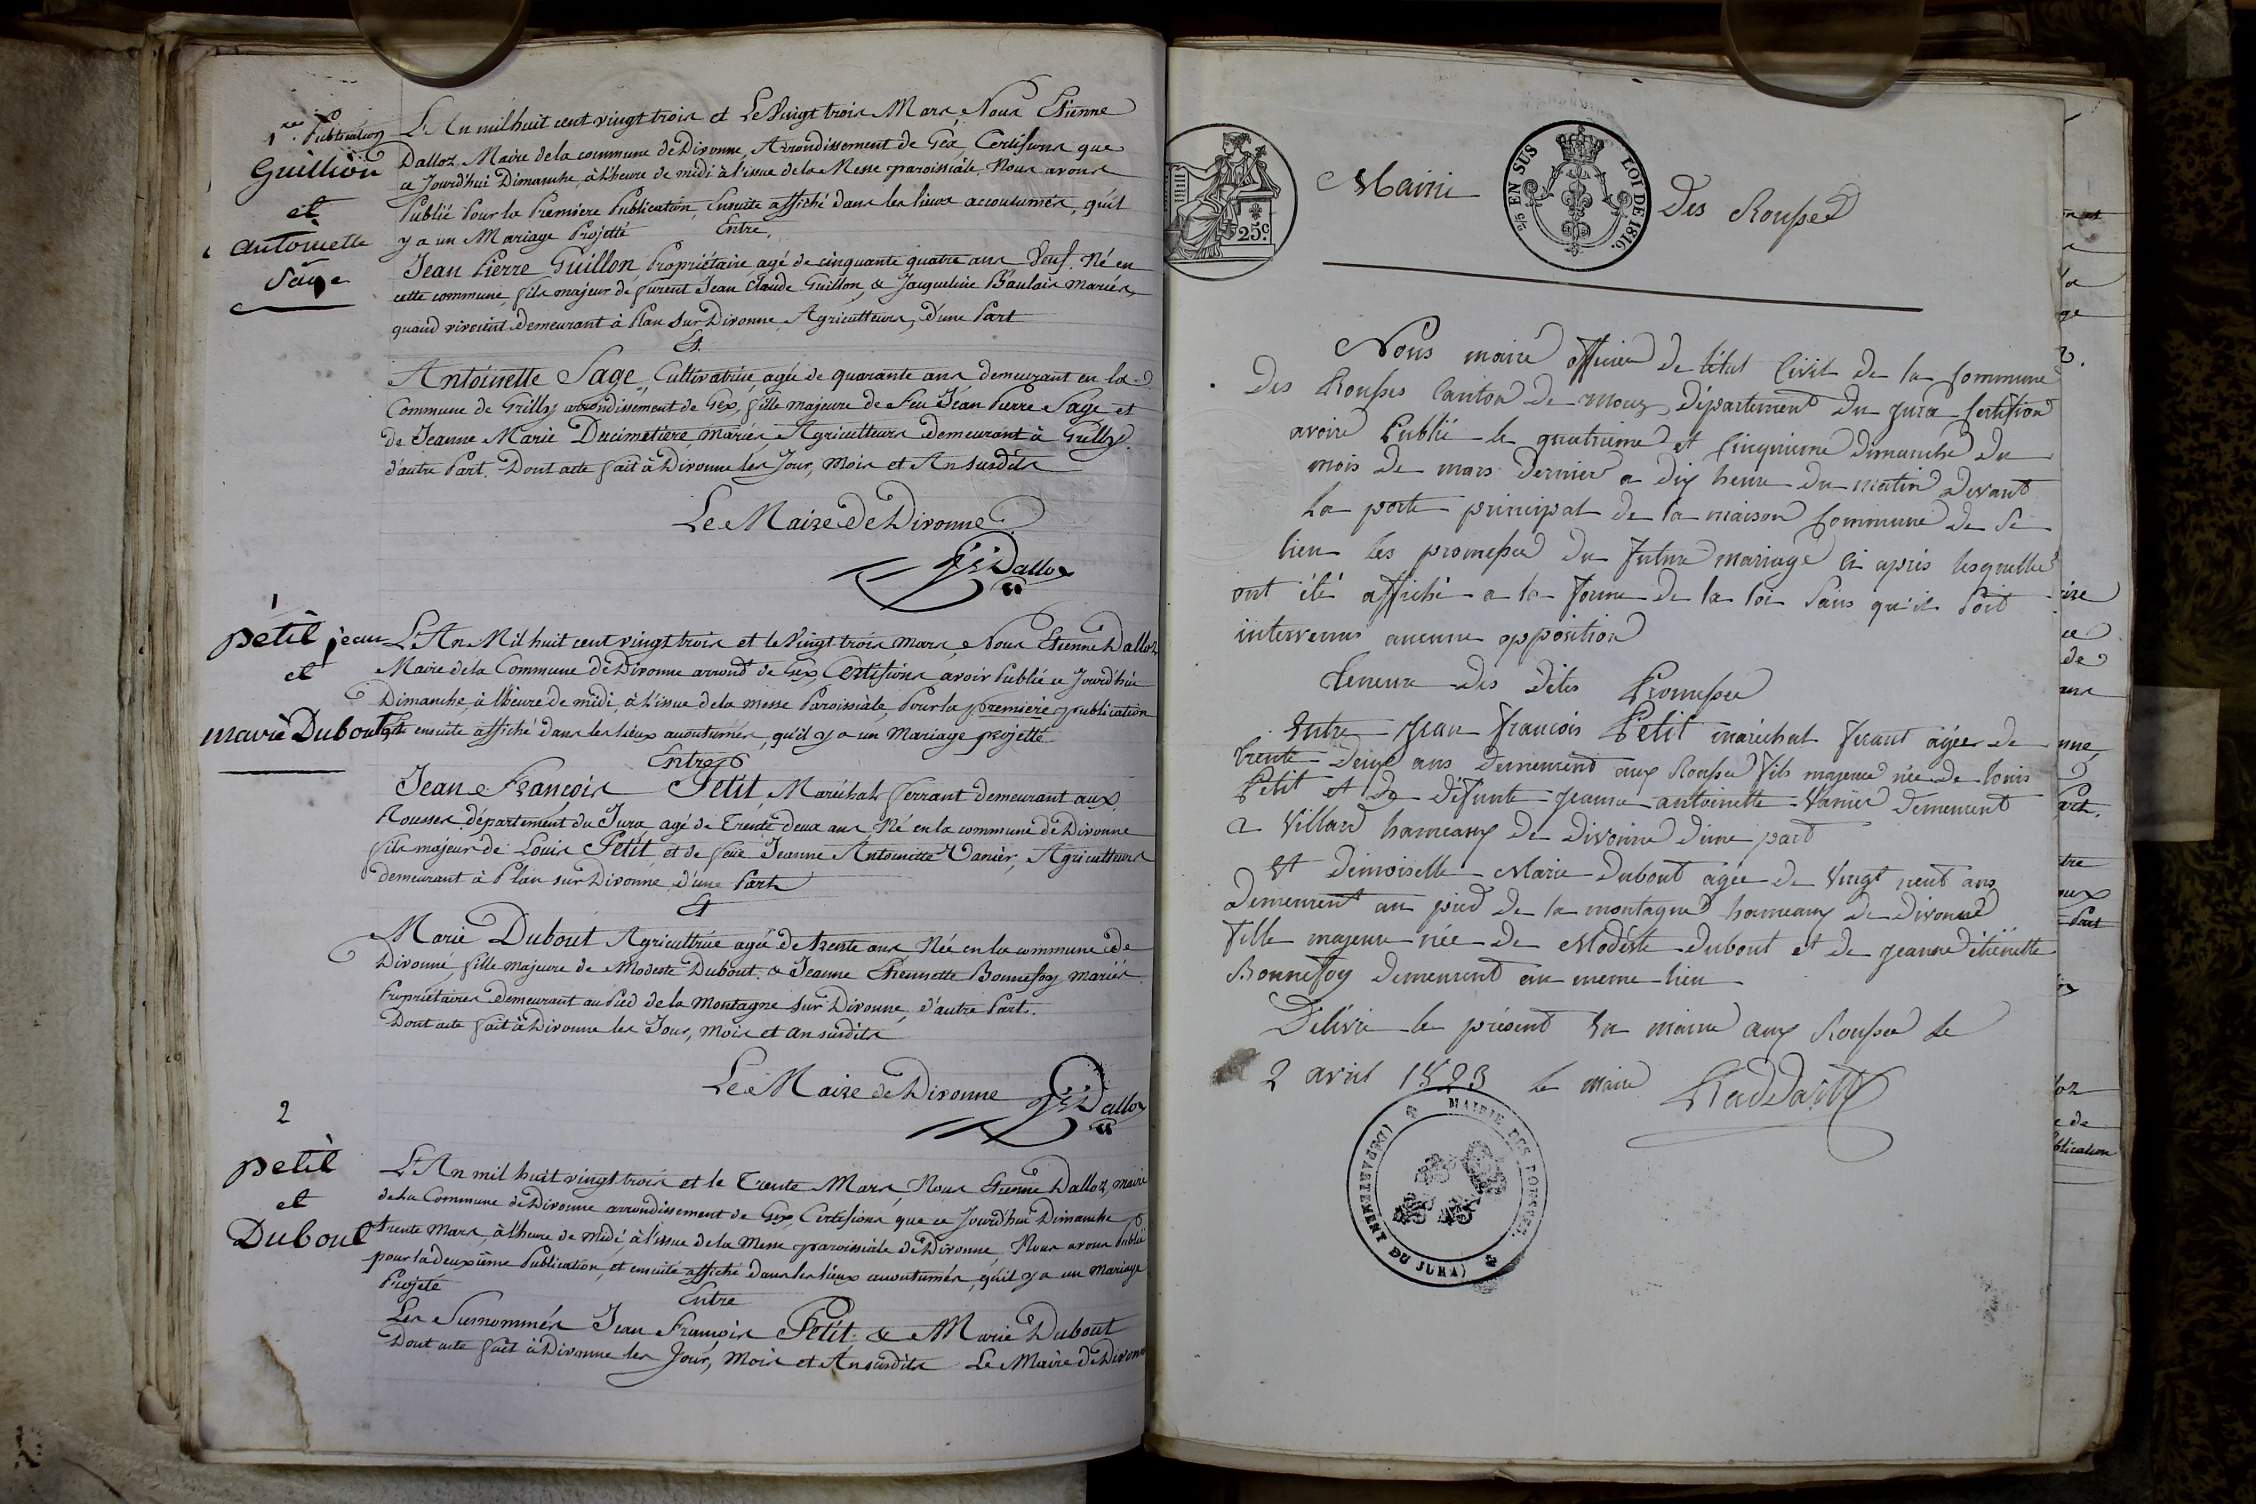 1re Publication
Guillion
et
antoinette
Sage
L'An mil huit cent vingt trois et Le Vingt trois Mars, Nous Etienne
Dalloz Maire de la commune de Divonne, Arrondissement de Gex, Certifions que
ce Jourd'hui Dimanche, à L'heure de midi à l'issue de la Messe paroissiale, Nous avons
Publié Pour la Premiere Publication, Ensuite affiché dans les lieux accoutumés, qu'il
y a un Mariage Projetté Entre,
Jean Pierre Guillon, Propriétaire, agé de cinquante quatre ans Veuf. Né en
cette commune, fils majeur de furent Jean Claude Guillon, & Jacqueline Baulais mariés,
quand vivoient demeurant à Plan sur Divonne, Agriculteurs, d'une Part
Et
Antoinette Sage, Cultivatrice, agée de quarante ans, demeurant en la
Commune de Grilly arrondissement de Gex, fille majeure de Feu Jean Pierre Sage et
de Jeanne Marie Ducimetiere, mariés, Agriculteurs demeurant à Grilly.
d'autre Part. Dont acte fait à Divonne les Jour, Mois et An susdits
Le Maire de Divonne
Dalloz
1
pétit jean
et
marie Dubout
L'An Mil huit cent vingt trois et le Vingt trois mars, Nous Etienne Dalloz
Maire de la Commune de Divonne arrondt de Gex, Certifions avoir Publié ce Jourd'hui
Dimanche, à l'heure de midi, à l'issue de la messe Paroissiale, Pour la premiere publication
ensuite affiché dans les lieux accoutumés, qu'il y a un Mariage projetté
Entre
Jean François Petit, Maréchal ferrant demeurant aux
Rousses, département du Jura, agé de Trente deux ans, Né en la commune de Divonne
fils majeur de Louis Petit, et de feüe Jeanne Antoinette Vanier, Agriculteurs
demeurant à Plan sur Divonne, d'une Part
Et
Marie Dubout Agricultrice agée de trente ans Née en la commune de
Divonne, fille majeure de Modeste Dubout & Jeanne Etiennette Bonnefoy mariés
Propriétaires demeurant au Pied de la Montagne sur Divonne, d'autre Part.
Dont acte fait à Divonne les Jour, Mois et an susdits
Le Maire de Divonne Dalloz
2
petit
et
Dubout
L'An mil huit vingt trois et le Trente Mars, Nous Etienne Dalloz, maire
de la Commune de Divonne arrondissement de Gex, Certifions que ce Jourd'hui Dimanche
trente Mars, à l'heure de midi, à l'issue de la Messe paroissiale de Divonne, Nous avons Publié
pour la deuxième Publication, et ensuite affiché dans les lieux accoutumés, qu'il y a un Mariage
Projeté Entre
Les Surnommés Jean François Petit & Marie Dubout
Dont acte fait à Divonne les Jour, Mois et An susdits Le Maire de Divonne
25c
25 EN SUS LOI DE 1816.
Mairie Des Rousses
Nous maire officier de l'état Civil de la Commune
des Rousses Canton de morez, département du jura Certifion
avoire Publié le quatrieme et Cinquieme dimanche du
mois de mars dernier a dix heure du matin devant
la porte principal de la maison Commune de Se
lieu les promesse du futur mariage Ci après lesquelle
ont été affiché a la forme de la loi Sans qu'il Soit
intervenus aucune opposition
teneur des dites Promesse
Entre Jean francois Petit maréchal ferant agée de
trente deux ans demeurent aux Rousse fils majeur née de louis
Petit et de défunte jeanne antoinette Vanier demeurent
a Villard hameaux de divonne d'une part
et demoiselle Marie Dubout agée de Vingt neuf ans
demeurent au pied de la montagne hameaux de divonne
fille majeure née de Modéste Dubout et de jeanne étiènette
Bonnefoy demeurent au meme lieu
Délivré le présent En mairie aux Rousse le
2 avril 1823 le maire
MAIRIE DES ROUSSES.
(DÉPARTEMENT DU JURA)